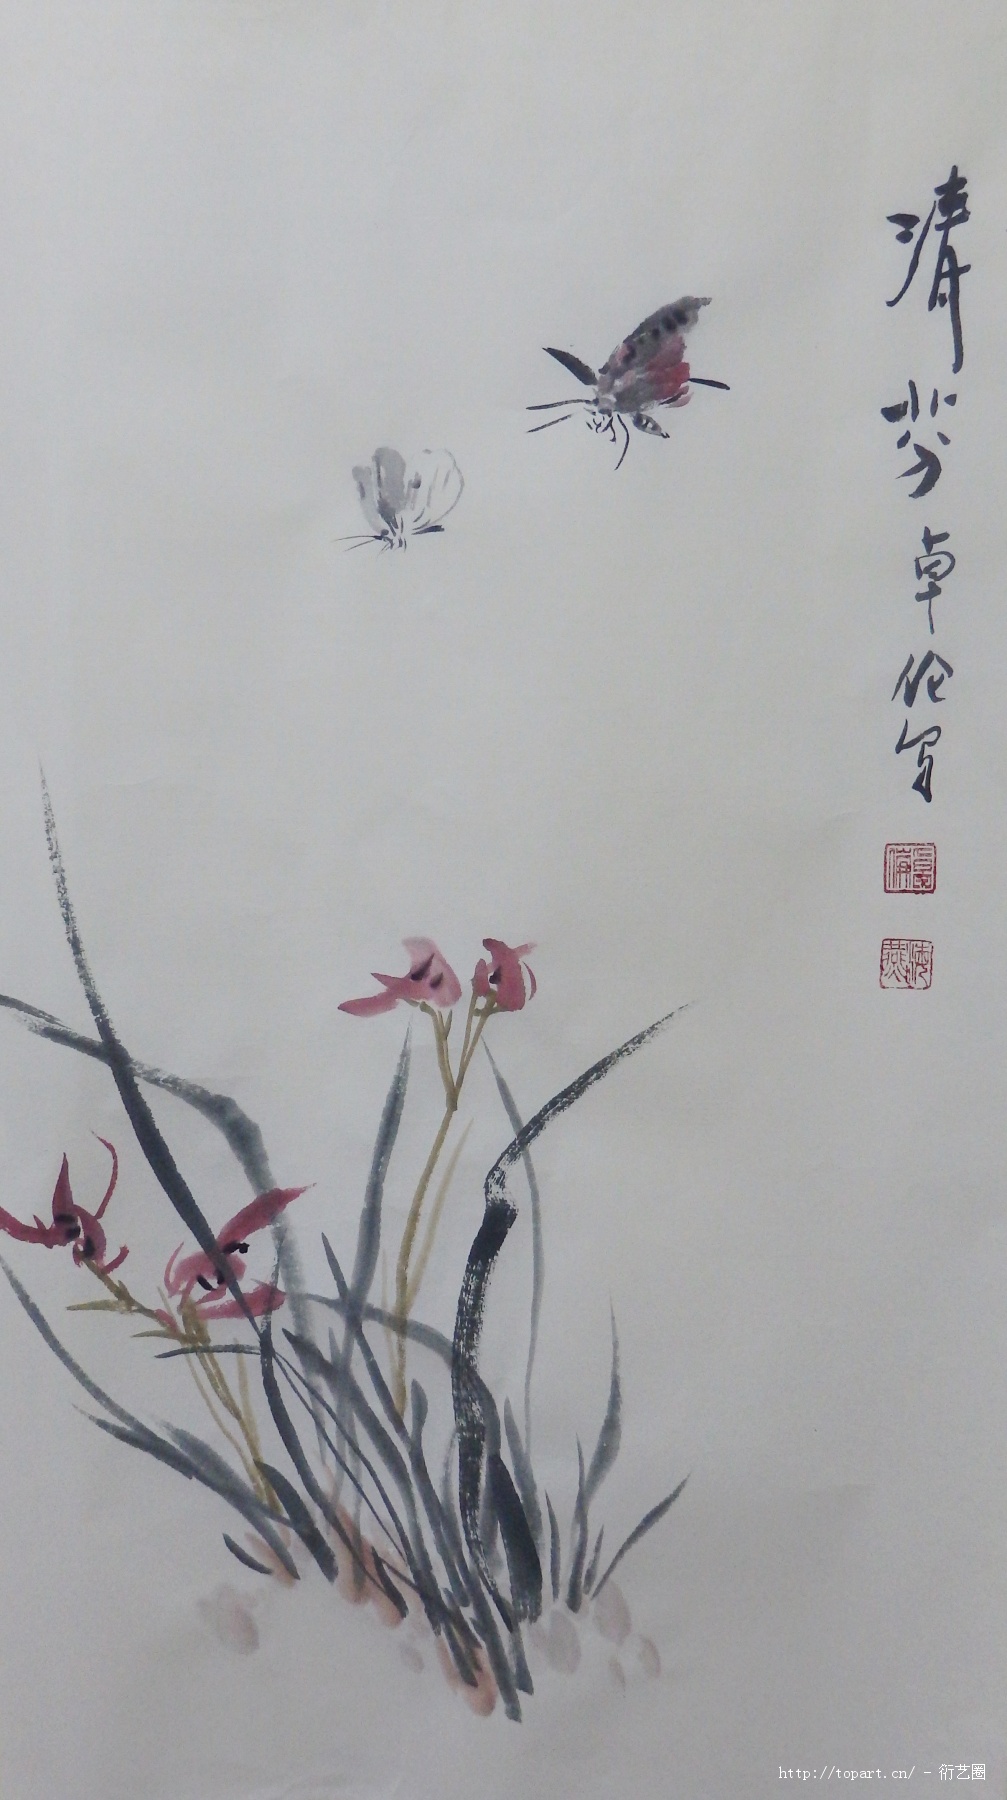 清芬 卓伦写
http://topart.cn/ - 衍艺圈